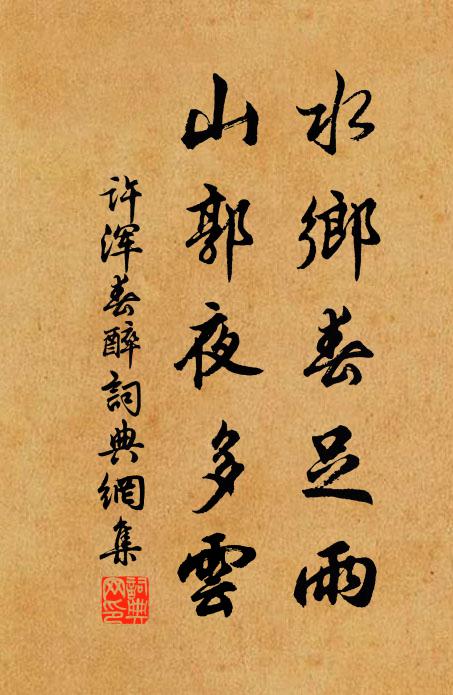 水鄉春足雨
山郭夜多雲
许浑春醉詞典網集
詞典网印